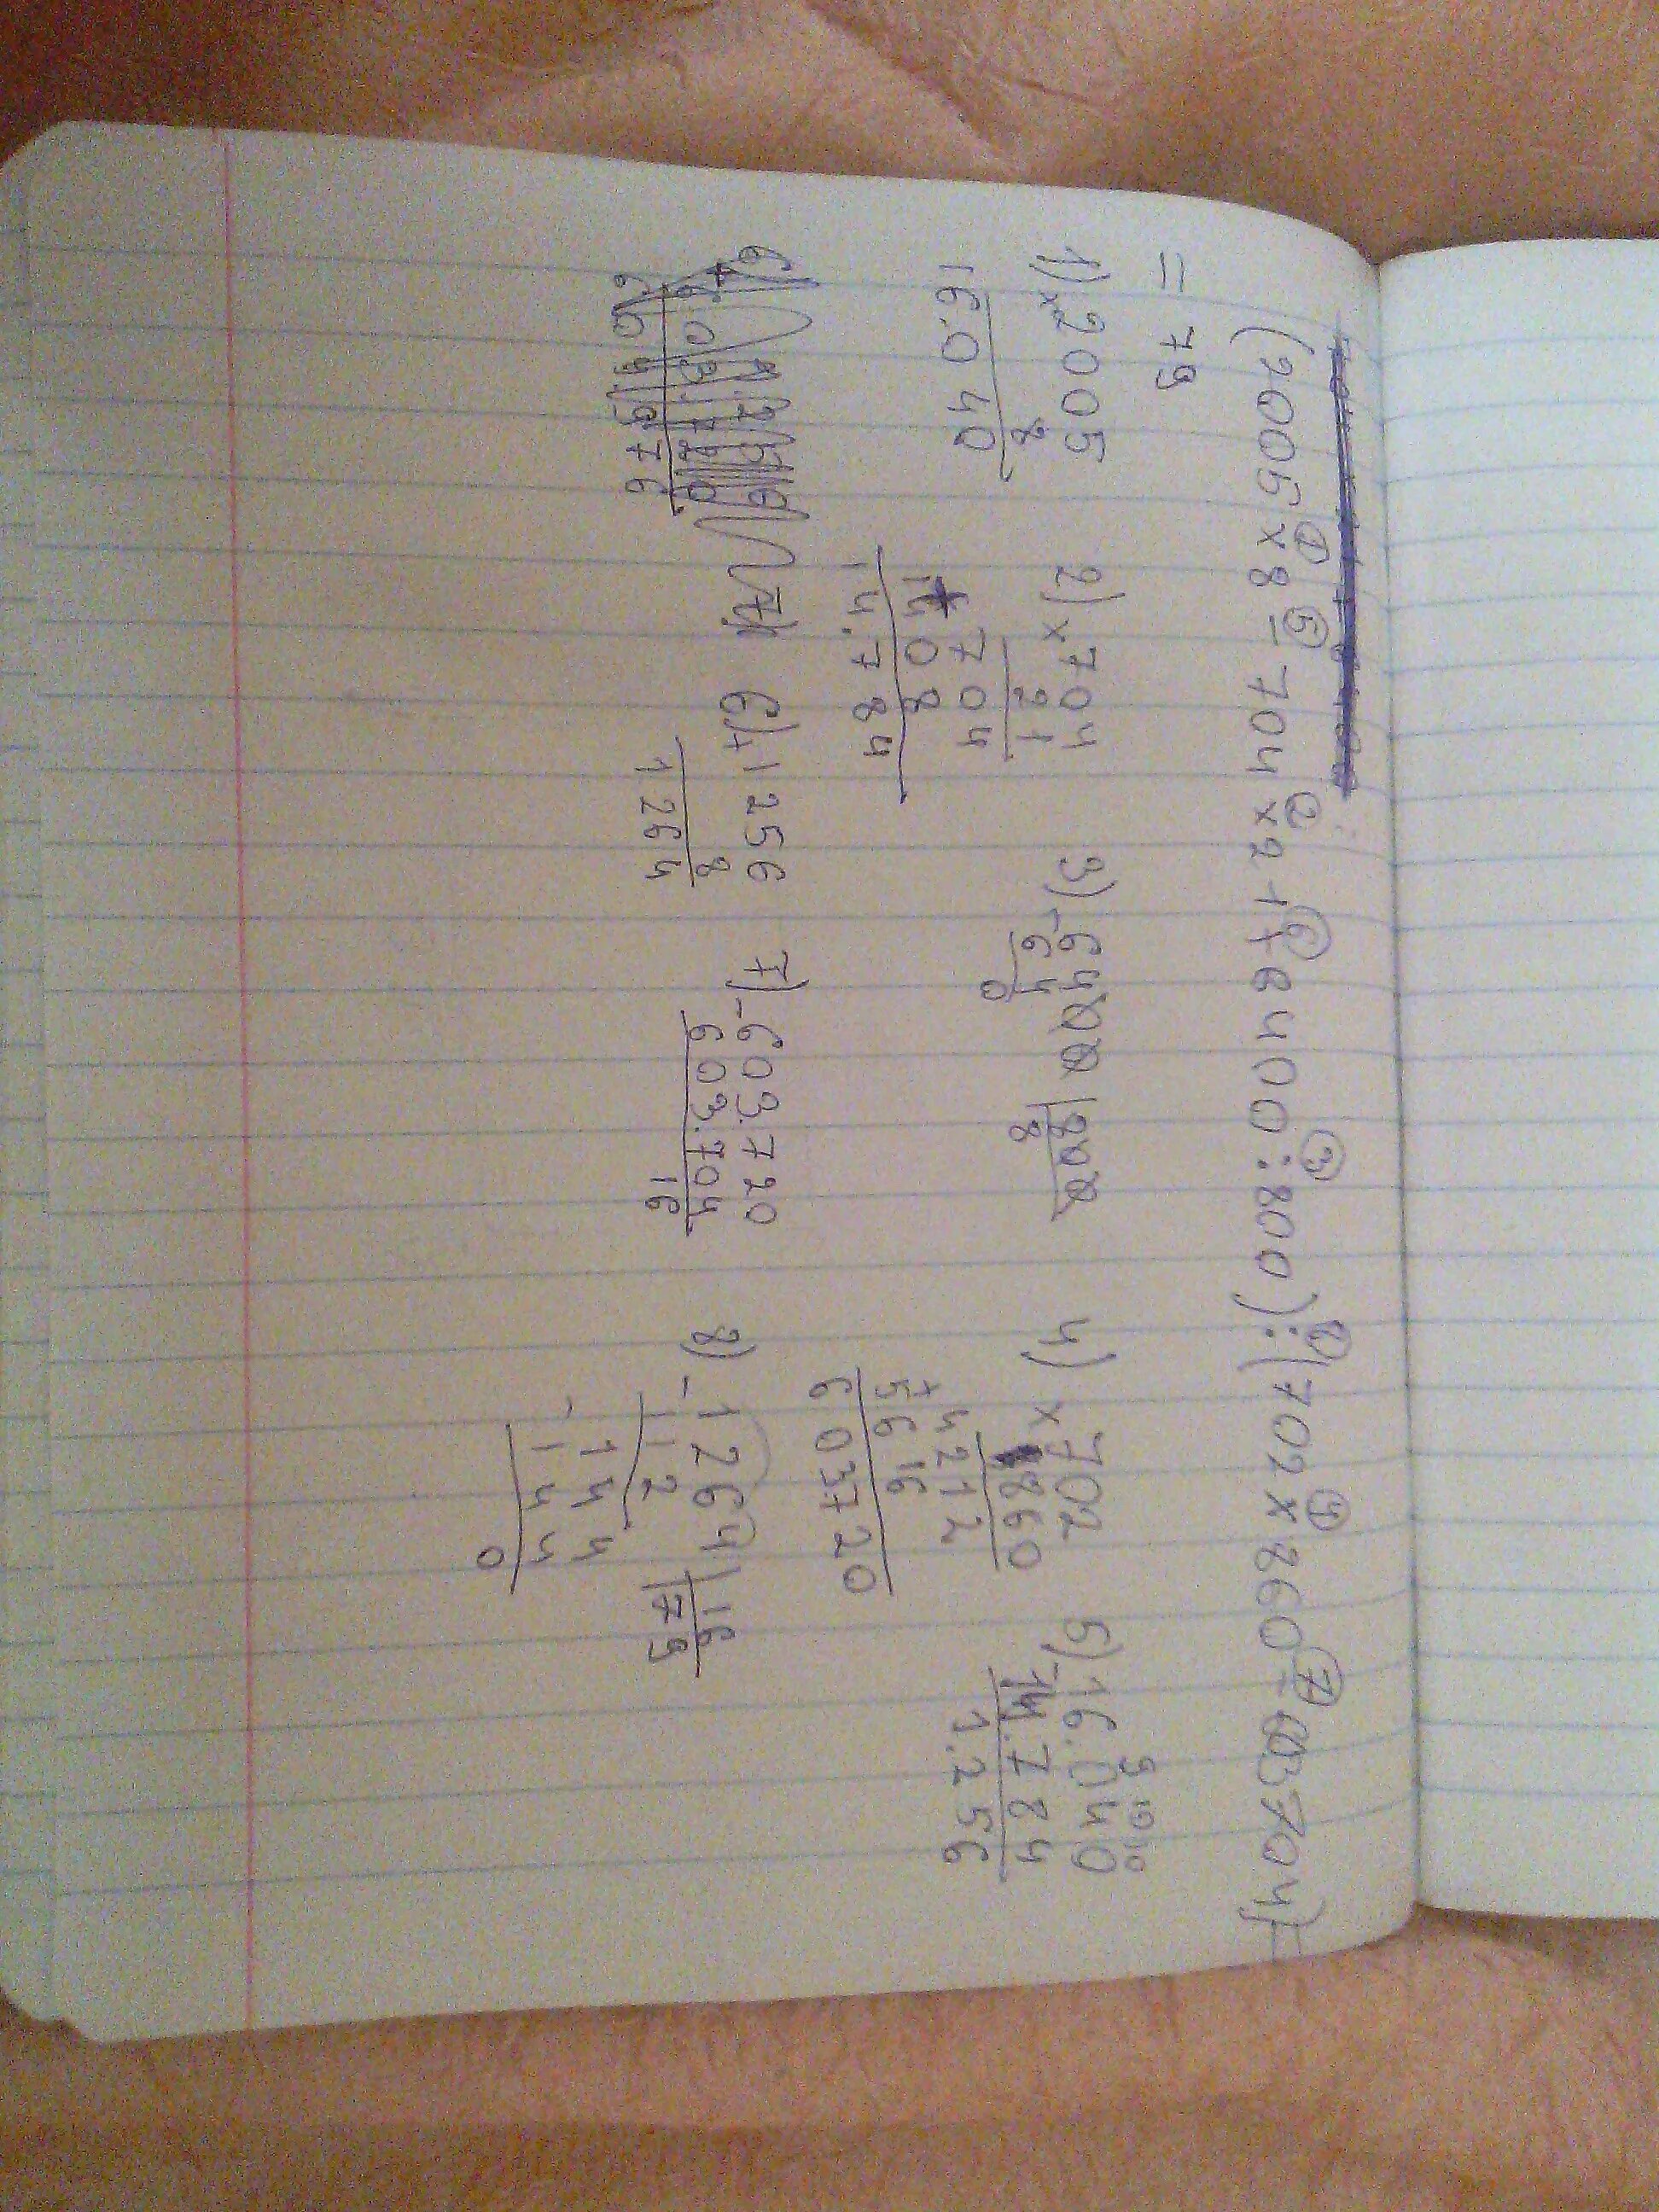 (2005 x 8 - 704 x 21 + 6400 : 800) : (702 x 860 - 603704) =
= 79
1) x 2005
8
16.040
2) x 704
21
704
1408
14.784
3) - 6400 | 800
64 8
0
4) x 702
860
4212
+ 5616
603720
5) - 16.040
14.784
1.256
6) + 1256
8
1264
7) - 603.720
603.704
16
8) - 1264 | 16
112 79
- 144
144
0